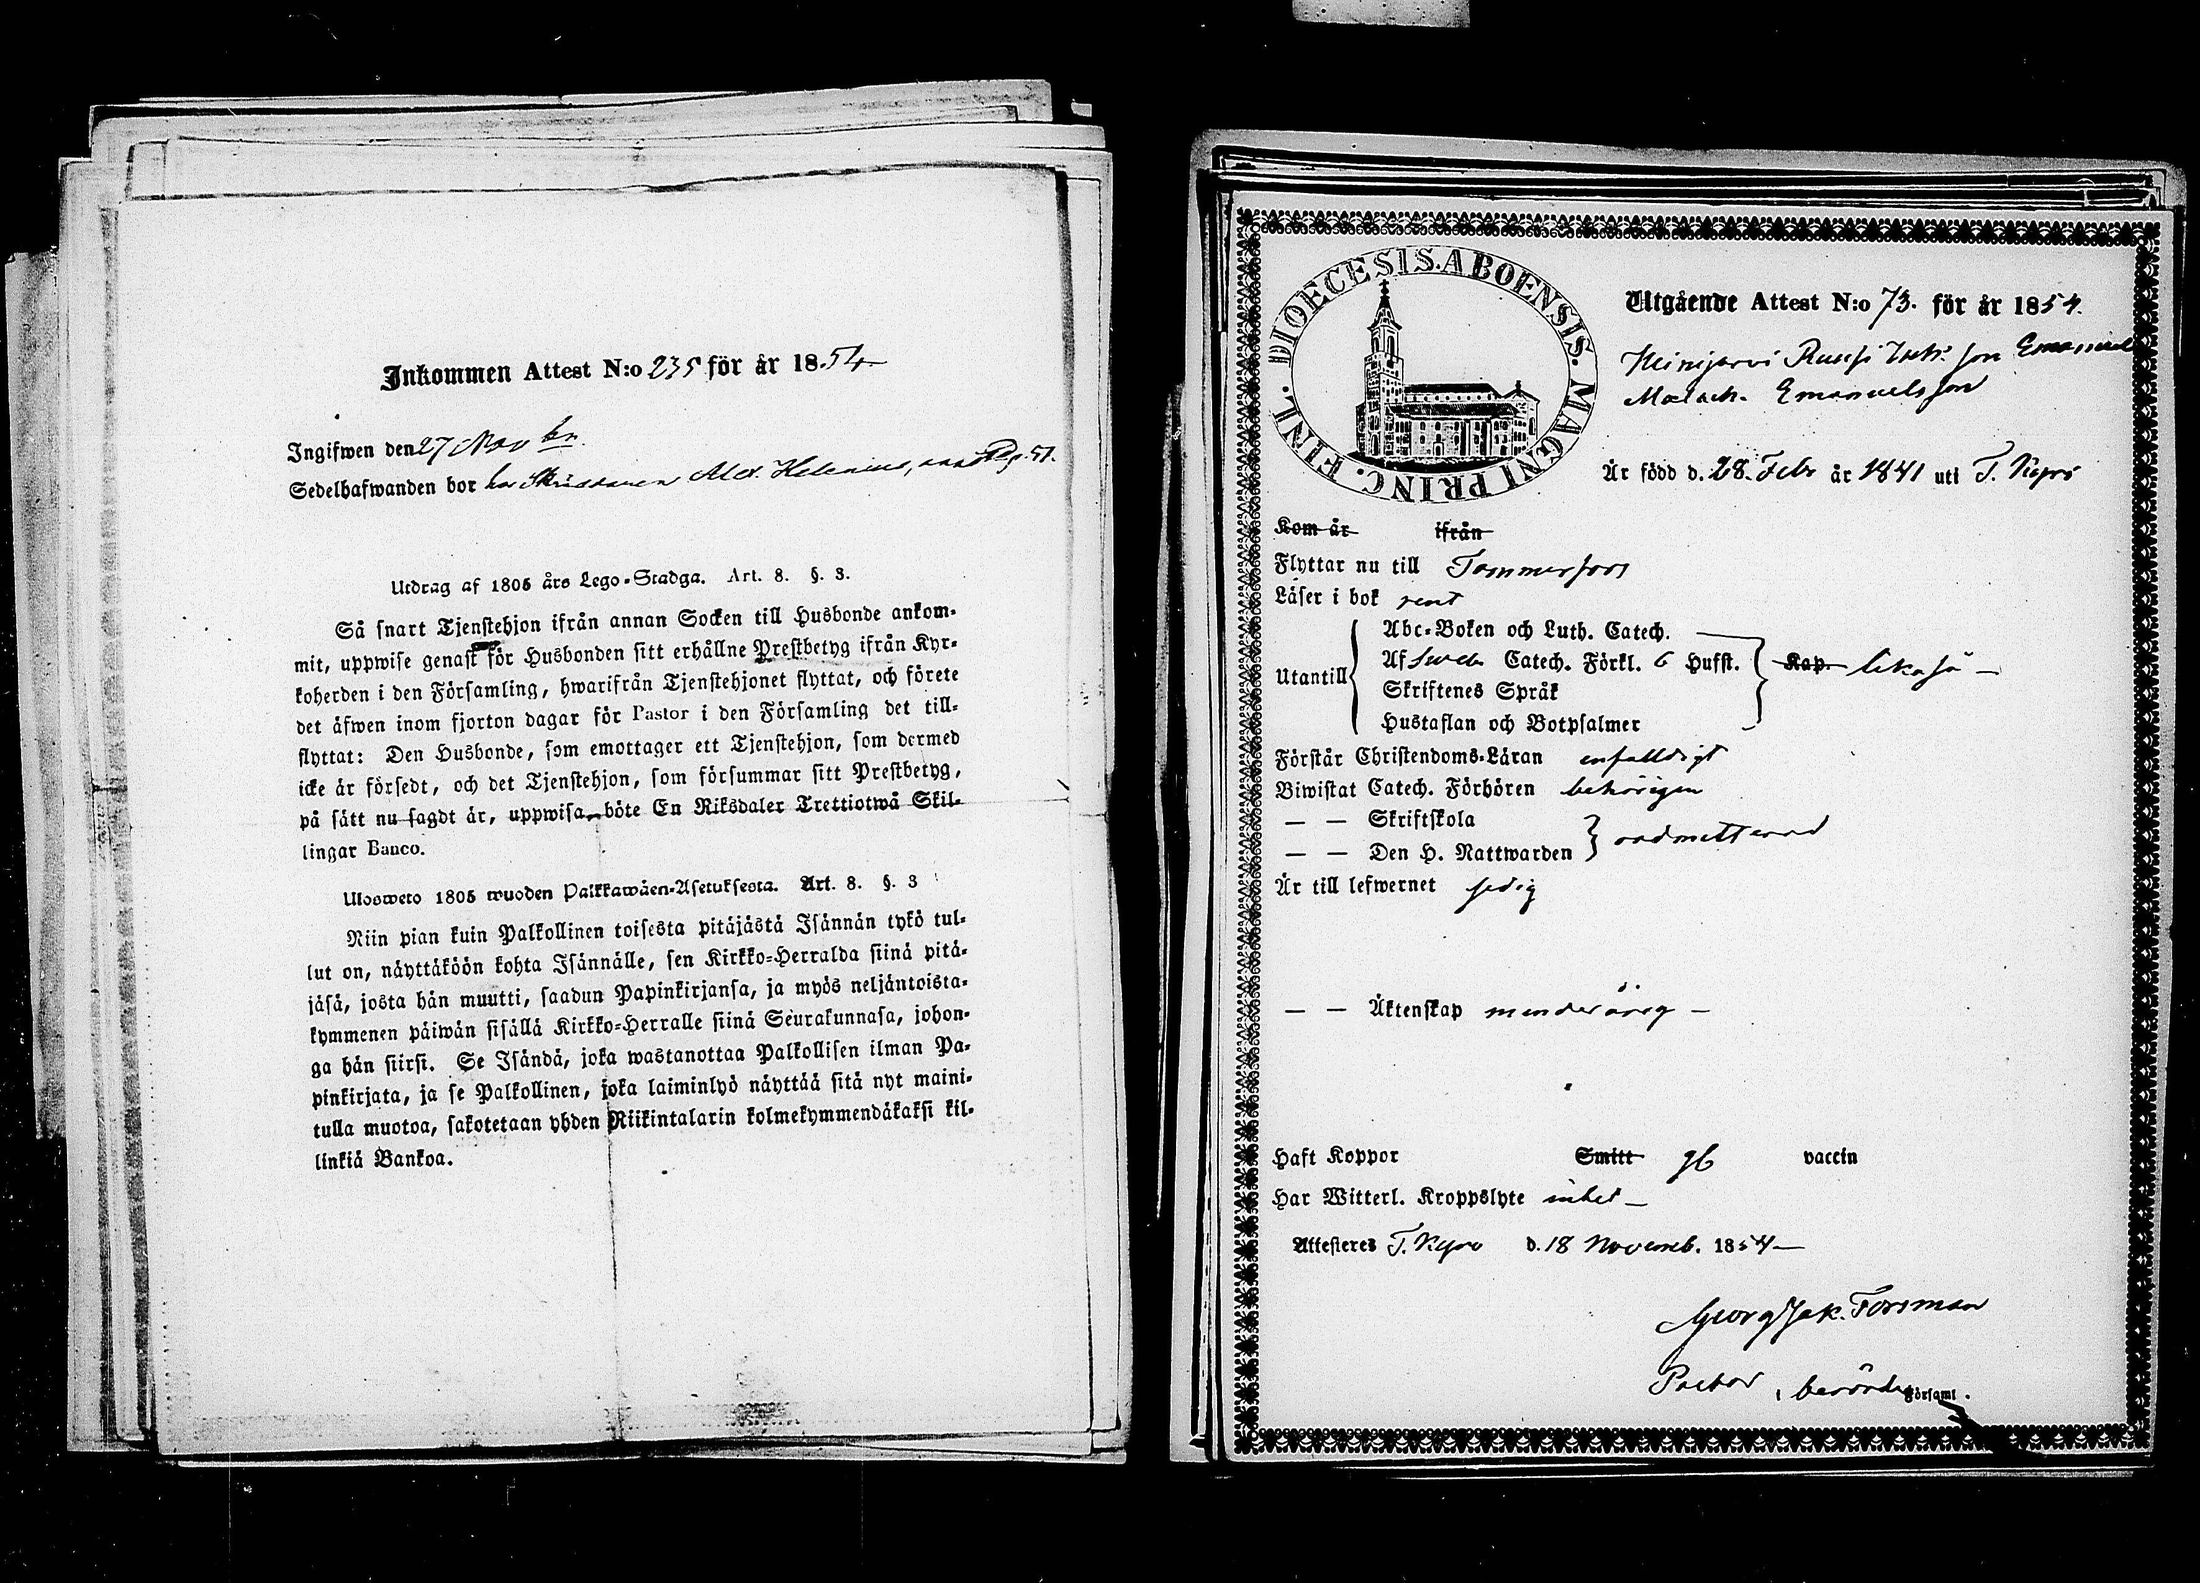 Inkommen Attest N:o 235 för år 1854
Ingifwen den 27 Novbr.
Sedelhafwanden bor hos Skräddaren Alex. Helenius, Pg. 51.
Utdrag af 1805 års Lego-Stadga. Art. 8. §. 3.
Så snart Tjenstehjon ifrån annan Socken till Husbonde ankom-
mit, uppwise genast för Husbonden sitt erhållne Prestbetyg ifrån Kyr-
koherden i den Församling, hwarifrån Tjenstehjonet flyttat, och förete
det äfwen inom fjorton dagar för Pastor i den Församling det till-
flyttat: Den Husbonde, som emottager ett Tjenstehjon, som dermed
icke är försedt, och det Tjenstehjon, som försummar sitt Prestbetyg,
på sätt nu sagdt är, uppwisa, böte En Riksdaler Trettiotwå Skil-
lingar Banco.
Ulosweto 1805 wuoden Palkkawäen-Asetuksesta. Art. 8. §. 3
Niin pian kuin Palkollinen toisesta pitäjästä Isännän tykö tul-
lut on, näyttäköön kohta Isännälle, sen Kirkko-Herralda siinä pitä-
jäsä, josta hän muutti, saadun Papinkirjansa, ja myös neljäntoista-
kymmenen päiwän sisällä Kirkko-Herralle siinä Seurakunnasa, johon-
ga hän siirsi. Se Isändä, joka wastanottaa Palkollisen ilman Pa-
pinkirjata, ja se Palkollinen, joka laiminlyö näyttää sitä nyt maini-
tulla muotoa, sakotetaan yhden Riikintalarin kolmekymmendäkaksi kil-
linkiä Bankoa.
DIOECESIS. ABOENSIS. MAGNI PRINC. FINL.
Utgående Attest N:o 73. för år 1854.
Heinijärvi son Emanuel
Malach. Emanuelsson
Är född d. 28. Febr år 1841 uti T. Kyro
Kom år ifrån
Flyttar nu till Tammerfors
Läser i bok rent
Utantill
Abc-Boken och Luth. Catech.
Af Sveb. Catech. Förkl. 6 Hufst. Kap. likaså —
Skriftenes Språk
Hustaflan och Botpsalmer
Förstår Christendoms-Läran enfalldigt
Biwistat Catech. Förhören behörigen
— — Skriftskola
— — Den H. Nattwarden oadmitterad
Är till lefwernet sedig
— — Äktenskap minderårig —
Haft Koppor Smitt gb vaccin
Har Witterl. Kroppslyte intet —
Attesteres T. Kyro d. 18 Novemb. 1854 —
Georg Jak. Forsman
Pastor i berörde Församl.